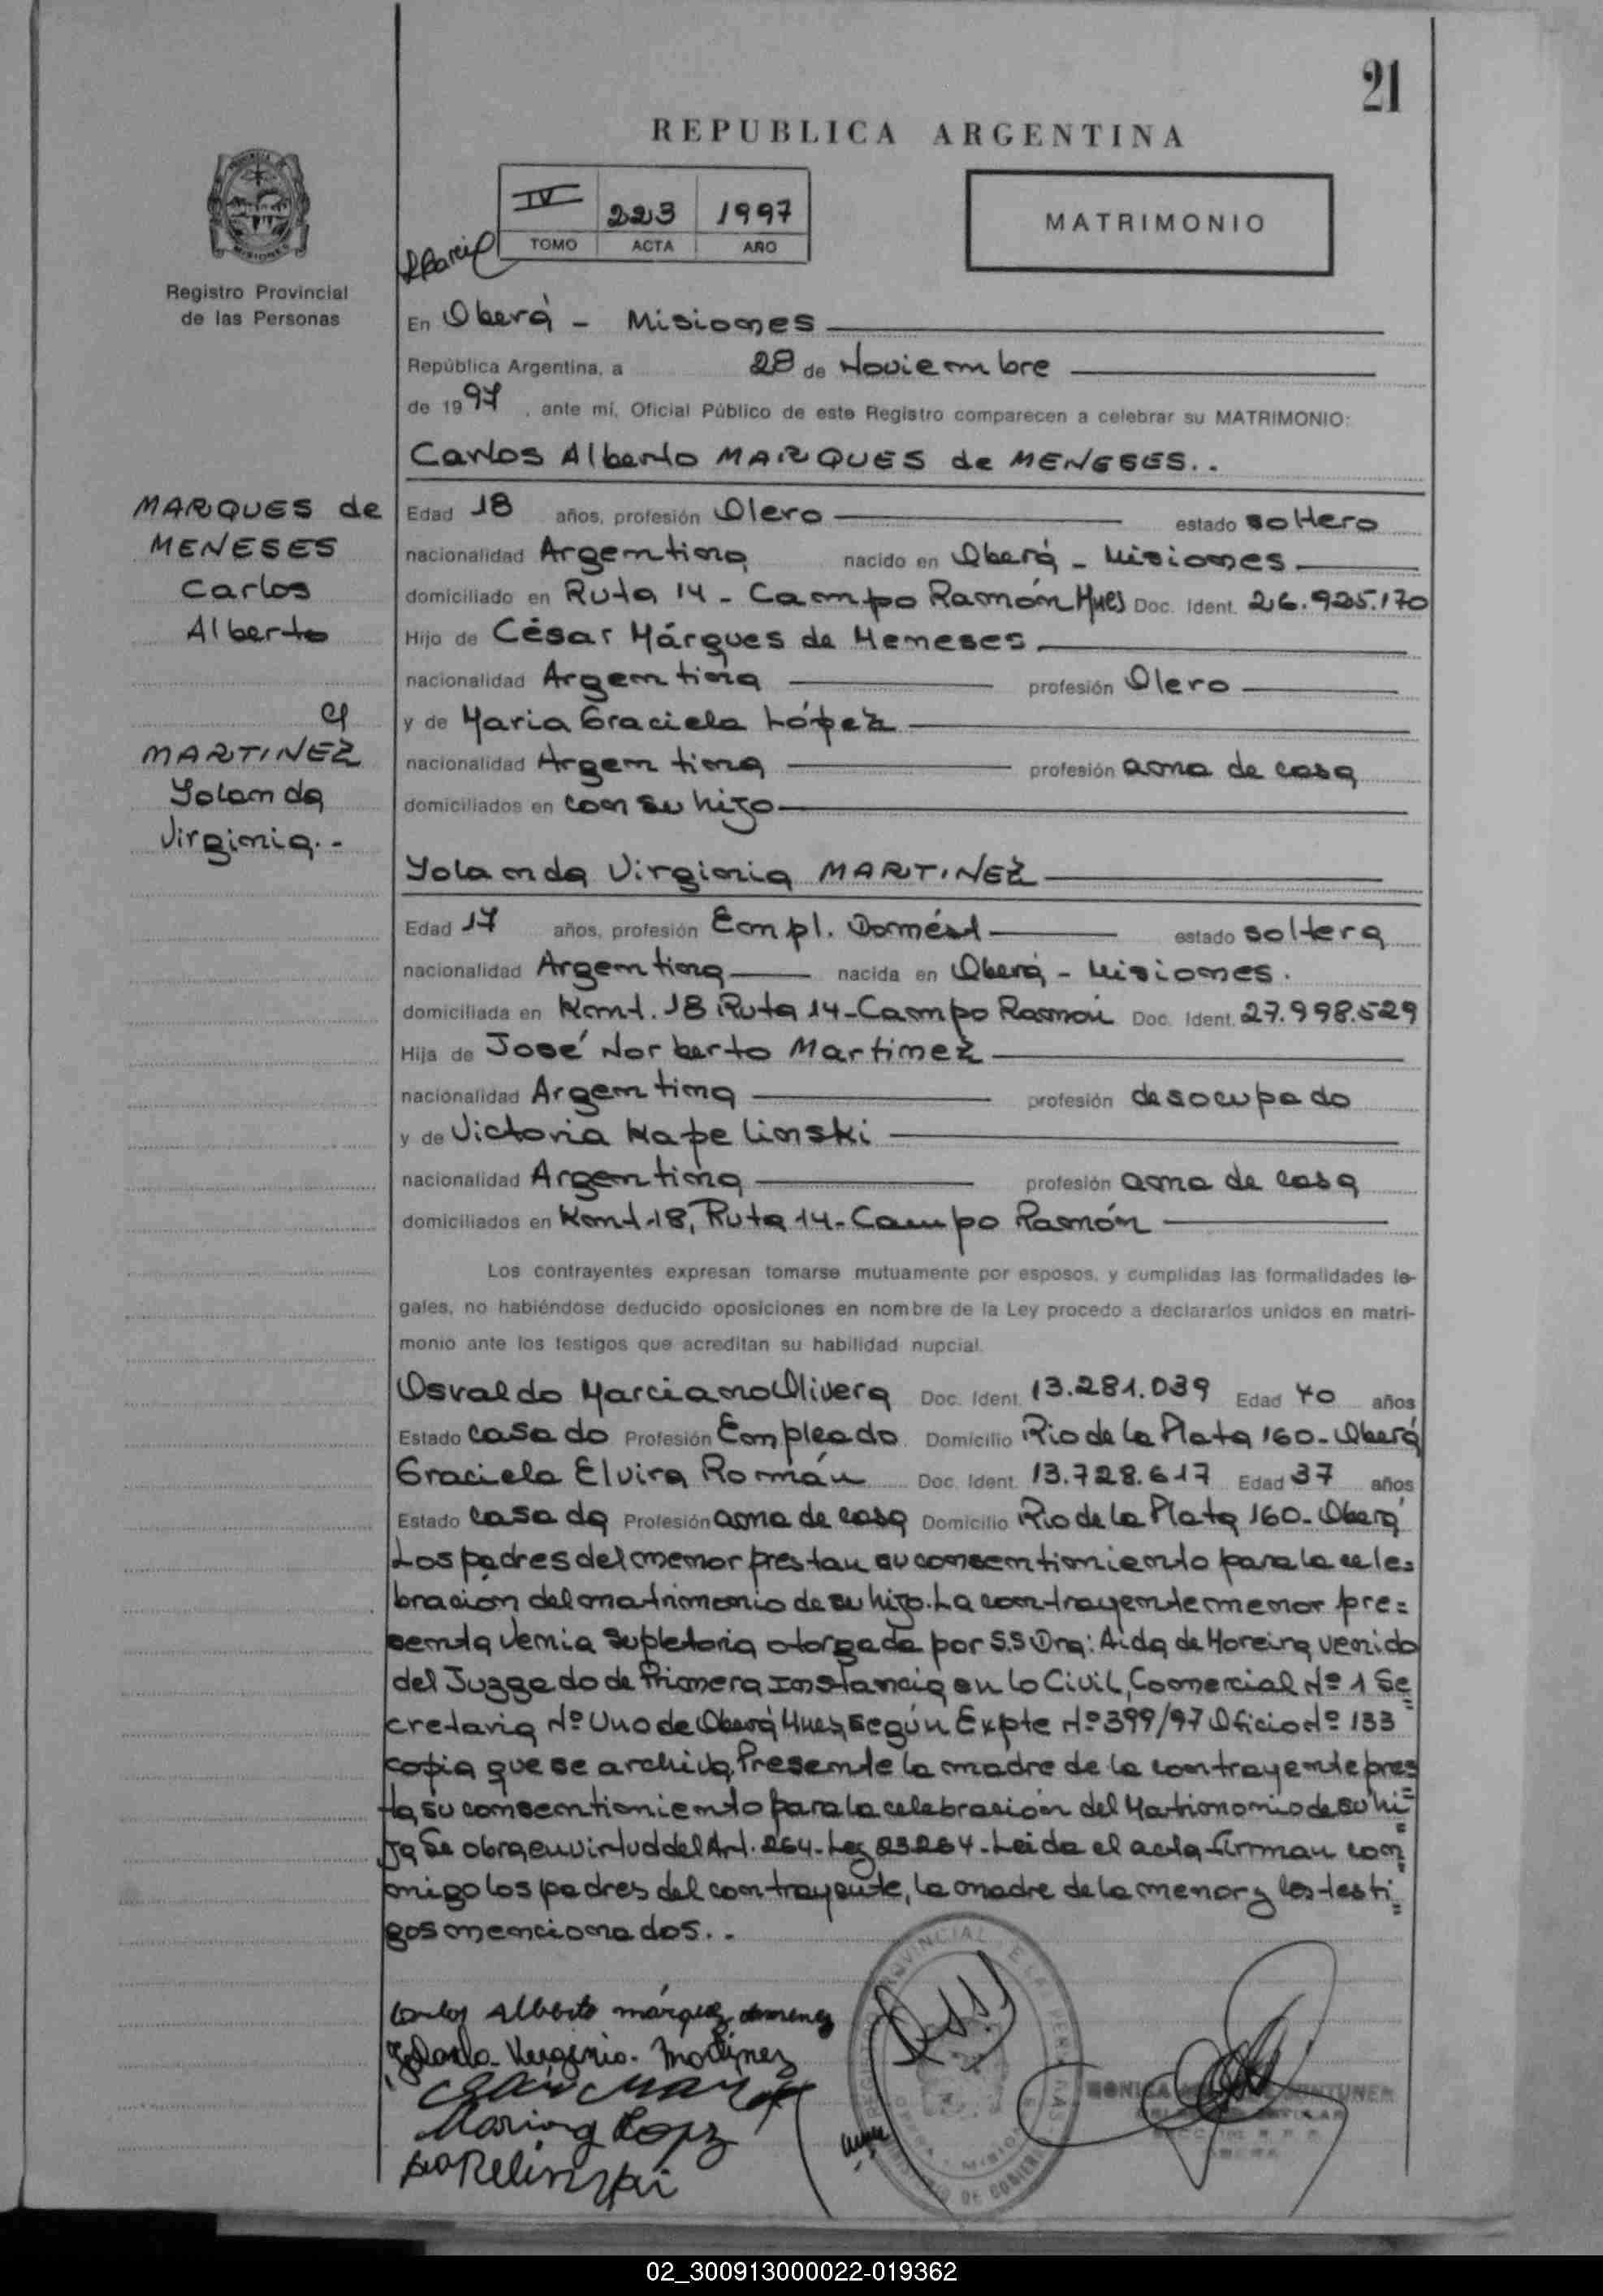 21
REPUBLICA ARGENTINA
IV 223 1997
TOMO ACTA AÑO
MATRIMONIO
Registro Provincial
de las Personas
En Oberá - Misiones
República Argentina, a 28 de Noviembre
de 1997, ante mí, Oficial Público de este Registro comparecen a celebrar su MATRIMONIO:
Carlos Alberto MARQUES de MENESES..
MARQUES de
MENESES
Carlos
Alberto
c/
MARTINEZ
Yolanda
Virginia.-
Edad 18 años, profesión Olero estado soltero
nacionalidad Argentina nacido en Oberá - Misiones
domiciliado en Ruta 14 - Campo Ramón Mnes Doc. Ident. 26.925.170
Hijo de César Márques de Meneses
nacionalidad Argentina profesión Olero
y de Maria Graciela López
nacionalidad Argentina profesión ama de casa
domiciliados en con su hijo
Yolanda Virginia MARTINEZ
Edad 17 años, profesión Empl. Domést estado soltera
nacionalidad Argentina nacida en Oberá - Misiones.
domiciliada en Kmt. 18 Ruta 14 - Campo Ramón Doc. Ident. 27.998.529
Hija de José Norberto Martinez
nacionalidad Argentina profesión desocupado
y de Victoria Kapelinski
nacionalidad Argentina profesión ama de casa
domiciliados en Kmt. 18, Ruta 14 - Campo Ramón
Los contrayentes expresan tomarse mutuamente por esposos, y cumplidas las formalidades le-
gales, no habiéndose deducido oposiciones en nombre de la Ley procedo a declararlos unidos en matri-
monio ante los testigos que acreditan su habilidad nupcial.
Osvaldo Marciano Olivera Doc. Ident. 13.281.039 Edad 40 años
Estado casado Profesión Empleado Domicilio Rio de la Plata 160 - Oberá
Graciela Elvira Román Doc. Ident. 13.728.617 Edad 37 años
Estado casada Profesión ama de casa Domicilio Rio de la Plata 160 - Oberá
Los padres del menor prestan su consentimiento para la cele=
bración del matrimonio de su hijo. La contrayente menor pre=
senta venia supletoria otorgada por S.S Dra: Aida de Moreira venido
del Juzgado de Primera Instancia en lo Civil, Comercial Nº 1 Se=
cretaria Nº Uno de Oberá Mnes, según Expte Nº 399/97 Oficio Nº 133
copia que se archiva. Presente la madre de la contrayente pres=
ta su consentimiento para la celebración del Matrimonio de su hi=
ja Se obra en virtud del Art. 264 - Ley 23264 - Leida el acta firman con=
migo los padres del contrayente, la madre de la menor y los testi=
gos mencionados..
Carlos Alberto márquez
Yolanda Virginia Martinez
Lopz
Kapelinski
02_300913000022-019362